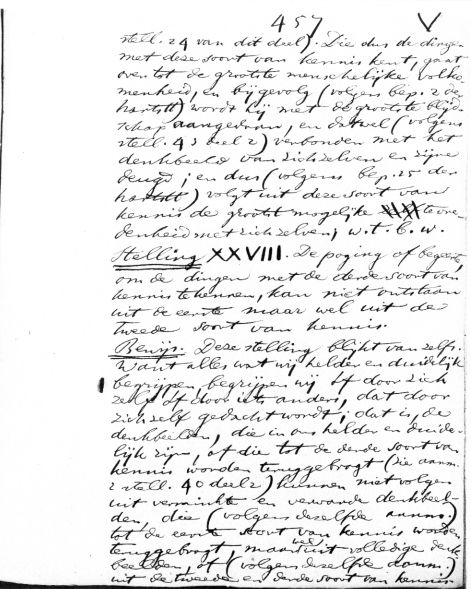 457 V
stell. 24 van dit deel). Die dus de dingen
met deze soort van kennis kent, gaat
over tot de grootste menschelijke volko-
menheid, en bij gevolg (volgens bep. 2 der
hartstt) wordt hij met de grootste blijd-
schap aangedaan, en dat wel (volgens
stell. 43 deel 2) verbonden met het
denkbeeld van zich zelven en zijne
deugd; en dus (volgens bep. 25 der
hartstt) volgt uit deze soort van
kennis de grootst mogelijke tevre-
denheid met zich zelven; w. t. b. w.
Stelling XXVIII. De poging of begeerte,
om de dingen met de derde soort van
kennis te kennen, kan niet ontstaan
uit de eerste maar wel uit de
tweede soort van kennis.
Bewijs. Deze stelling blijkt van zelfs.
Want alles wat wij helder en duidelijk
begrijpen, begrijpen wij òf door zich
zelf òf door iets anders, dat door
zich zelf gedacht wordt; dat is, de
denkbeelden, die in ons helder en duide-
lijk zijn, of die tot de derde soort van
kennis worden teruggebragt (zie aanm.
2 stell. 40 deel 2) kunnen niet volgen
uit verminkte en verwarde denkbeel-
den, die (volgens dezelfde aanm.)
tot de eerste soort van kennis worden
teruggebragt, maar wel uit volledige denk-
beelden, of (volgens dezelfde aanm.)
uit de tweede en derde soort van kennis